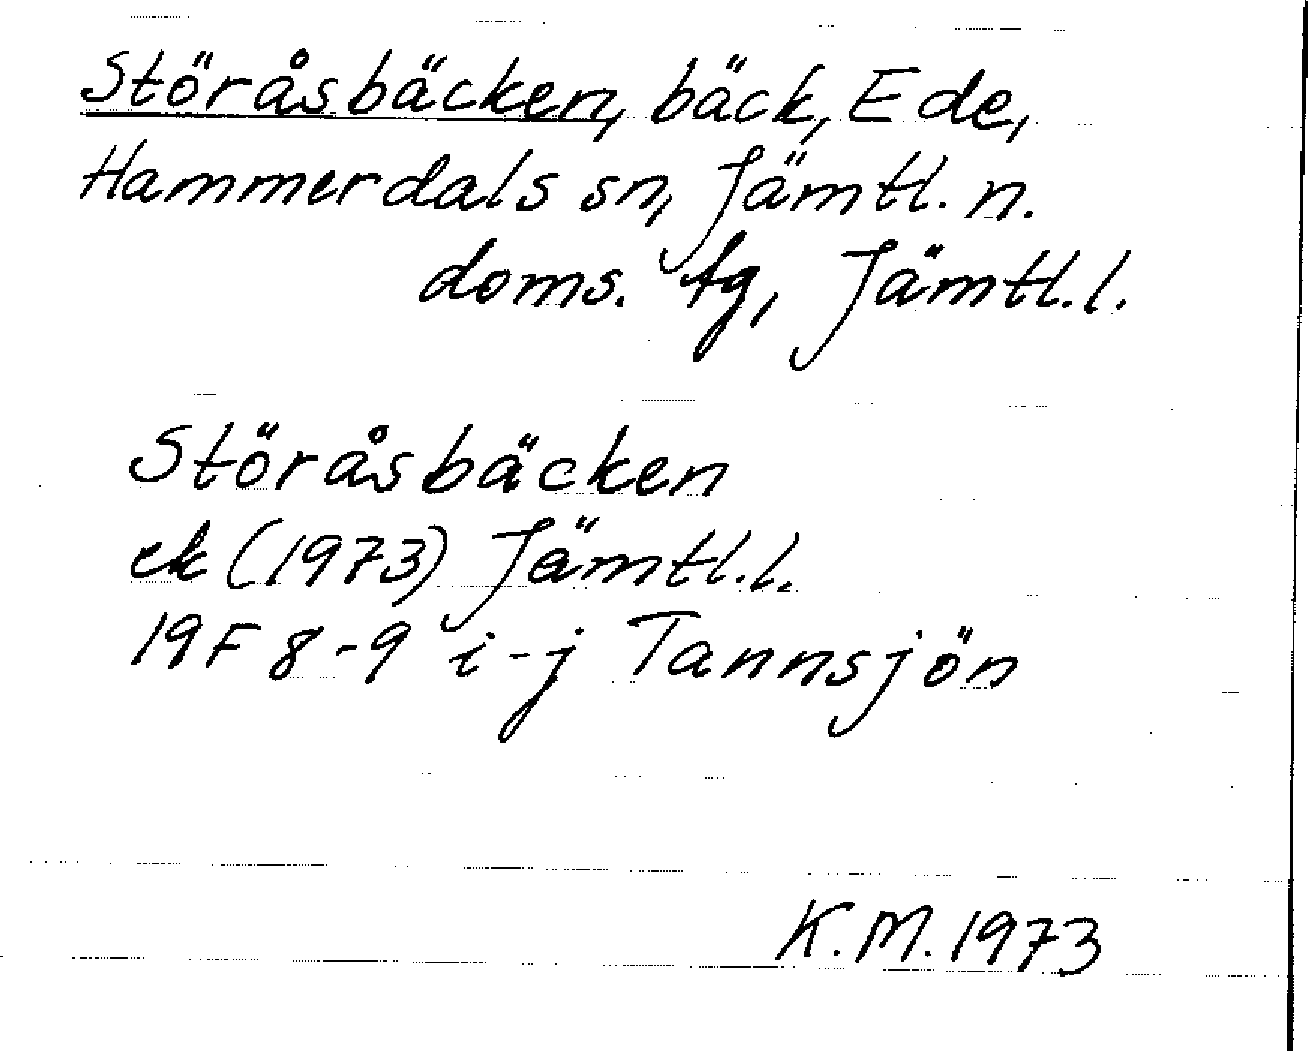 Störåsbäcken, bäck, Ede,
Hammerdals sn, Jämtl. n.
doms. tg, Jämtl. l.
Störåsbäcken
ek (1973) Jämtl. l.
19F 8-9 i-j Tannsjön
K.M. 1973